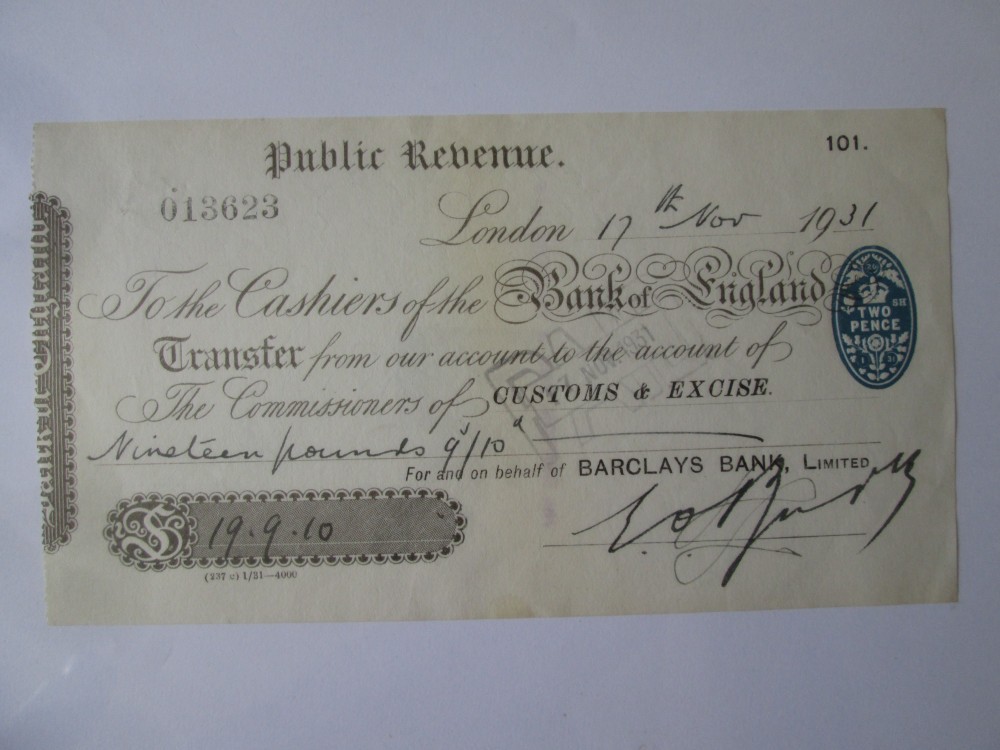 Public Revenue.
101.
013623
London 17th Nov 1931
To the Cashiers of the Bank of England
TWO PENCE
Transfer from our account to the account of
NOV. 1931
The Commissioners of CUSTOMS & EXCISE.
Nineteen pounds 9s/10d
For and on behalf of BARCLAYS BANK, LIMITED
£ 19.9.10
(237 c) 1/31—4000